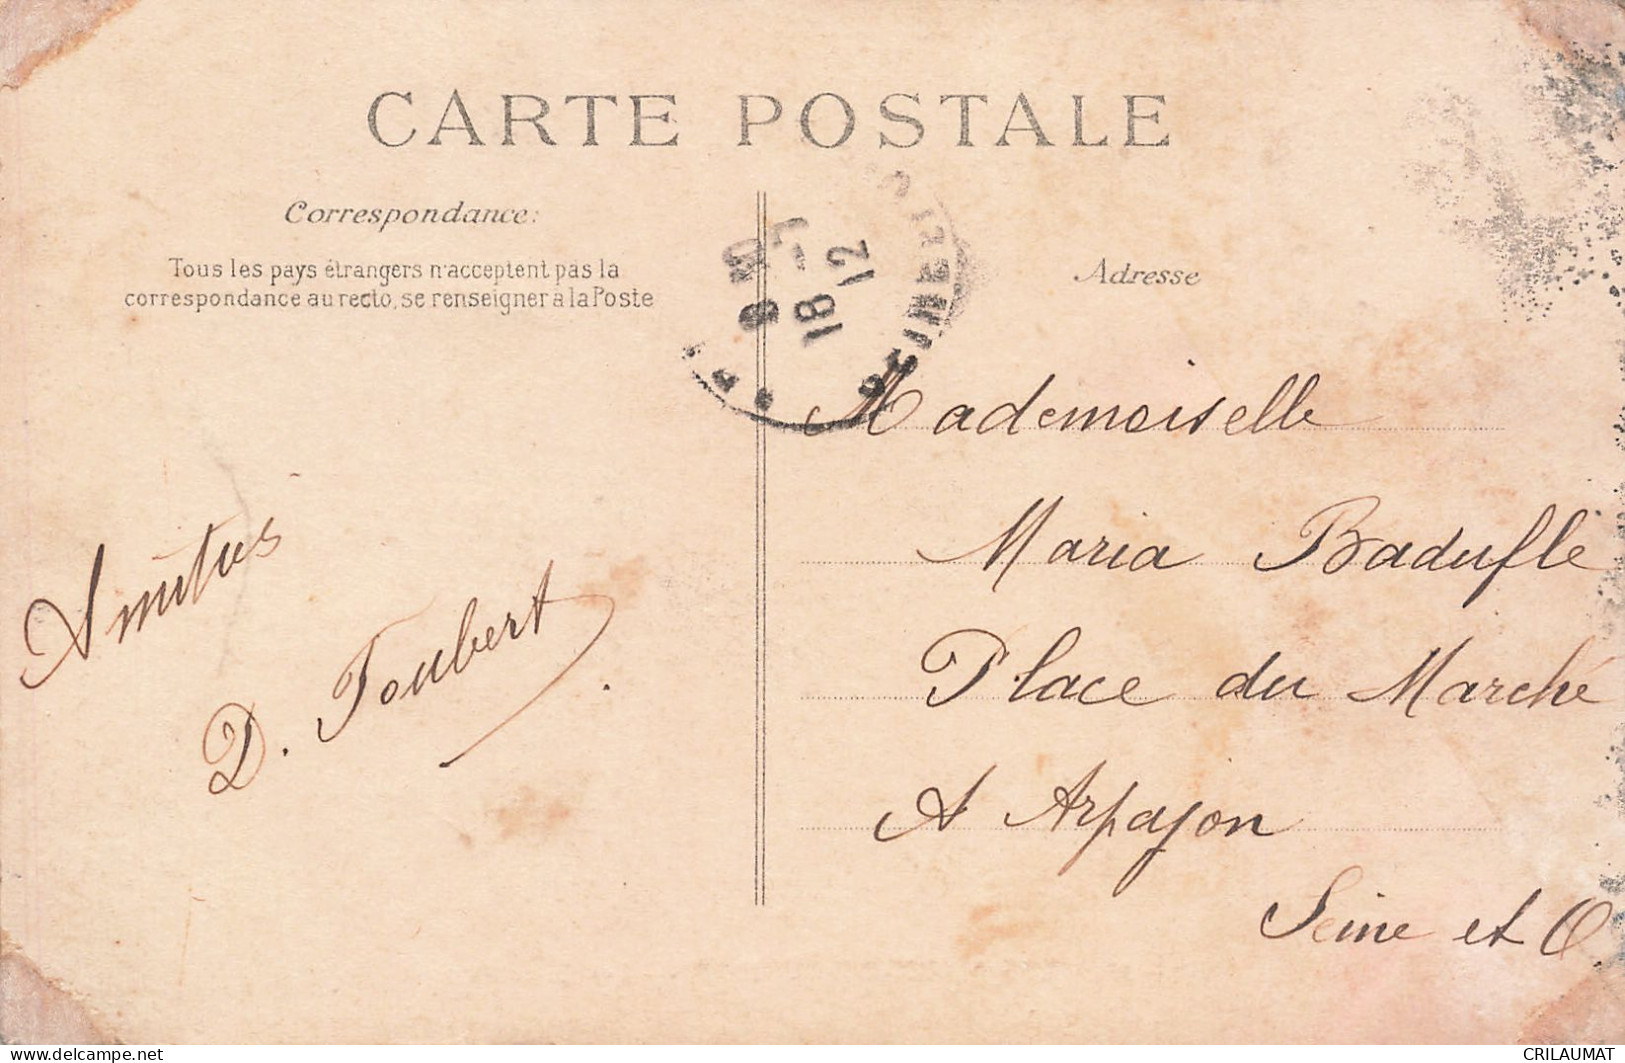 CARTE POSTALE
Correspondance:
Tous les pays étrangers n'acceptent pas la
correspondance au recto, se renseigner à la Poste
Adresse
18 - 12
Amitiés
D. Joubert
Mademoiselle
Maria Badufle
Place du Marché
A Arpajon
Seine et O.
CRILAUMAT